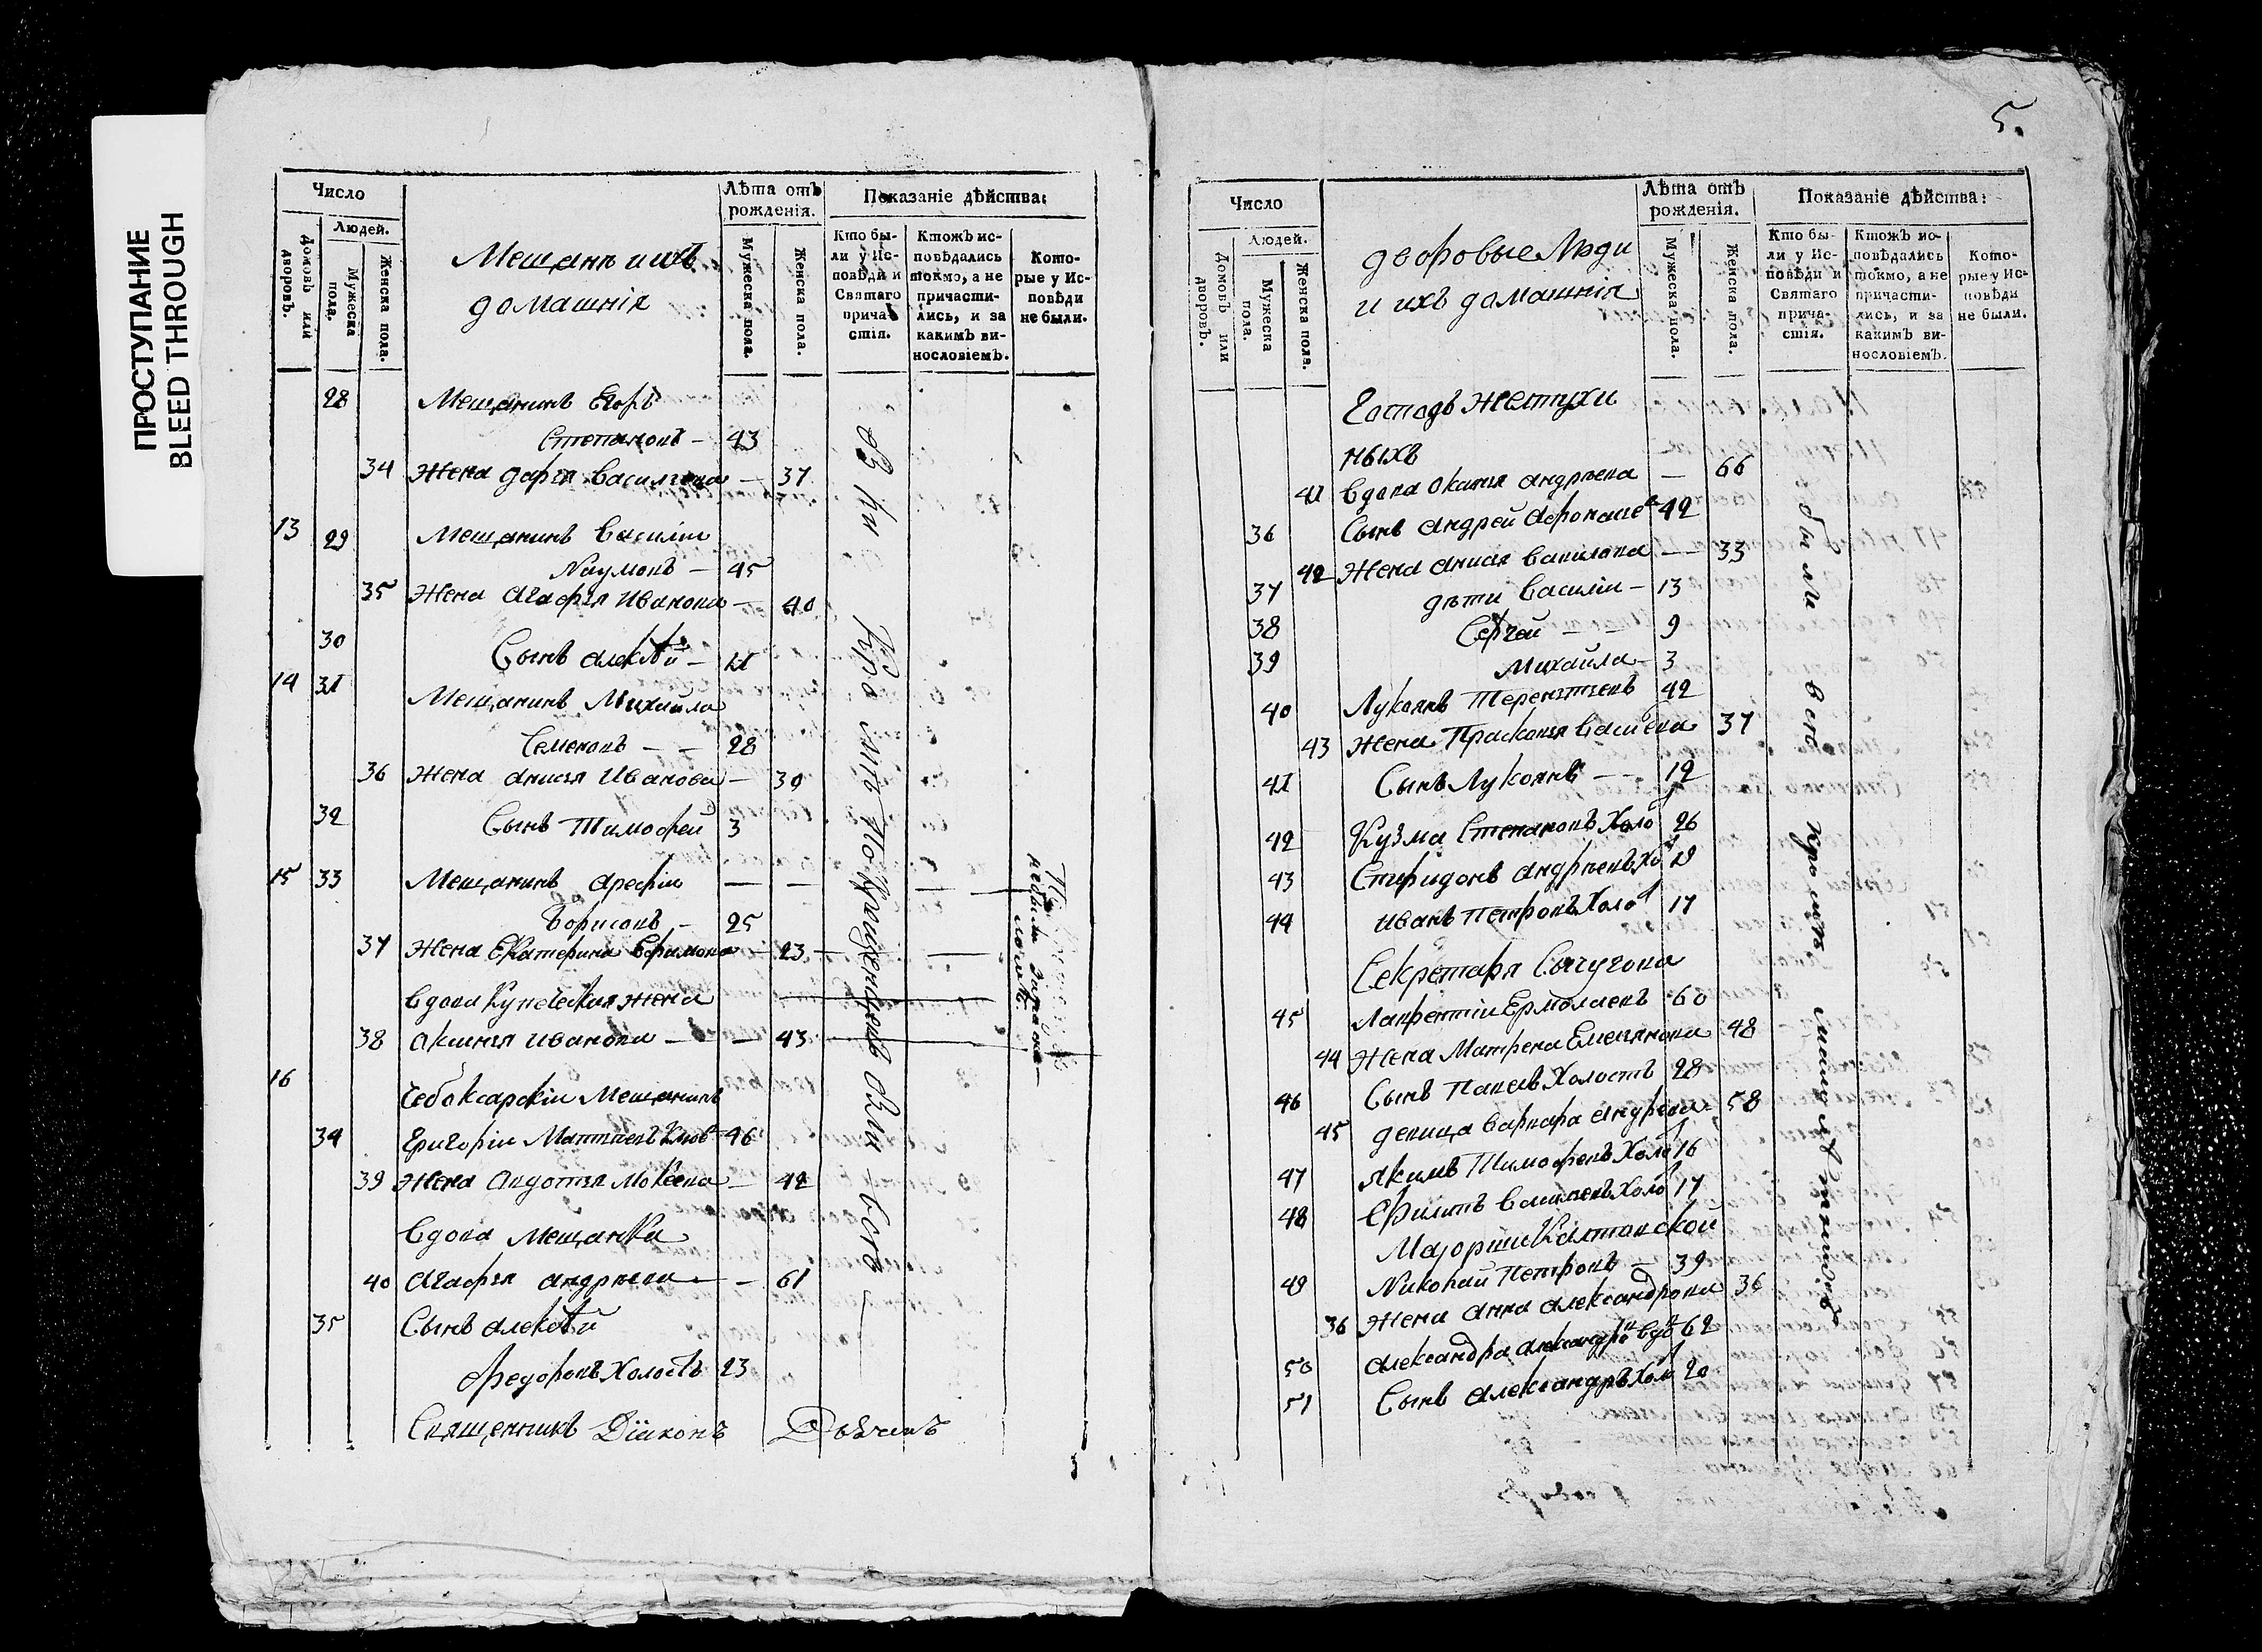 ПРОСТУПАНИЕ
BLEED THROUGH
Число
Людей.
Домовъ или дворовъ.
Мужеска пола.
Женска пола.
Мещанъ и ихъ
домашнія
Лѣта отъ рожденія.
Мужеска пола.
Женска пола.
Показаніе дѣйства:
Кто бы-
ли у Ис-
повѣди и
Святаго
прича-
стія.
Ктожъ ис-
повѣдались
токмо, а не
причасти-
лись, и за
какимъ ви-
нословіемъ.
Кото-
рые у Ис-
повѣди
не были.
28 Мещанинъ Егоръ
Степановъ – 43
34 Жена Дарья Василіева – 37
13 29 Мещанинъ Василій
Наумовъ – 45
35 Жена Агафія Иванова – 40
30 Сынъ Алексѣй – 11
14 31 Мещанинъ Михайла
Семеновъ – – 28
36 Жена Анисія Иванова – 30
32 Сынъ Тимофей 3
15 33 Мещанинъ Арефій – –
Борисовъ – 25
37 Жена Екатерина Ефимова – 23
Вдова Купеческая жена
38 Аксинія Иванова – – 43
16 Чебоксарскій Мещанинъ
34 Григорій Матвѣевъ 46
39 Жена Авдотія Мокѣева – 42
Вдова Мещанка
40 Агафія Андрѣева – – 61
35 Сынъ Алексѣй
Федоровъ Холостъ 23
Кромѣ всѣ
Священникъ Діаконъ Дьячекъ
5.
Число
Людей.
Домовъ или дворовъ.
Мужеска пола.
Женска пола.
Дворовые Люди
и ихъ домашнія
Лѣта отъ рожденія.
Мужеска пола.
Женска пола.
Показаніе дѣйства:
Кто бы-
ли у Ис-
повѣди и
Святаго
прича-
стія.
Ктожъ ис-
повѣдались
токмо, а не
причасти-
лись, и за
какимъ ви-
нословіемъ.
Кото-
рые у Ис-
повѣди
не были.
Господъ Жемчужи
ныхъ
41 Вдова Андрѣева – 66
36 Сынъ Андрей 42
42 Жена Анисія Вавилова – 33
37 дѣти Василій – 13
38 Сергей – – 9
39 Михайла – 3
40 Лукоянъ Терентіевъ 42
43 Жена Прасковія 37
41 Сынъ Лукоянъ – – 12
42 Кузма Степановъ Холо 26
43 Спиридонъ Андрѣевъ Хо 19
44 Иванъ Петровъ Холо 17
Секретаря Сычугова
45 Лаврентій Ермолаевъ 60
44 Жена Матрена Емельянова 48
46 Сынъ Павелъ Холостъ 28
45 Девица Варвара Андреева 58
47 Якимъ Тимофевъ Холо 16
48 Филипъ Холо 17
Маіорши Калтовской
49 Николай Петровъ – 39
36 Жена Анна Александрова 36
50 Александра вдо 62
51 Сынъ Александръ Хол 20
были всѣ кромѣ малолѣтныхъ